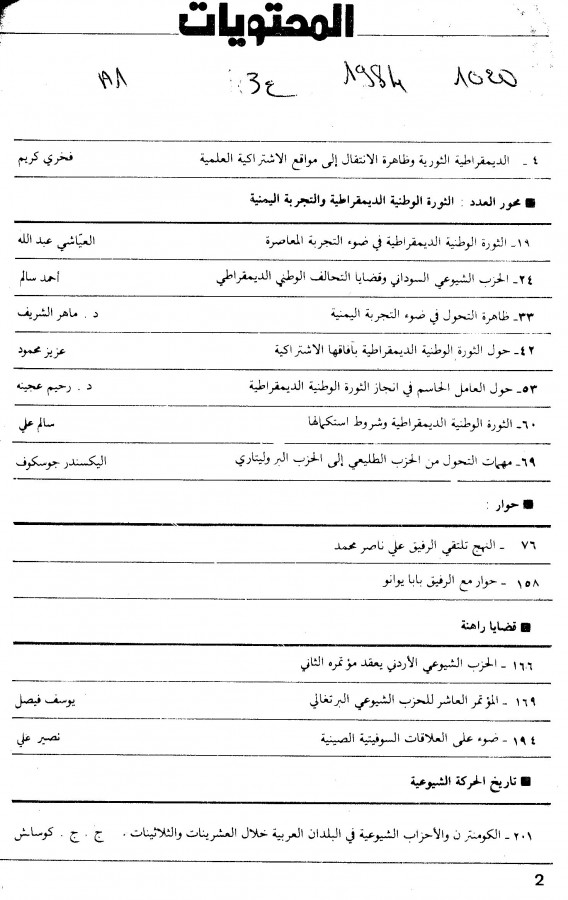 المحتويات
1020 1984 ع3 181
٤ - الديمقراطية الثورية وظاهرة الانتقال إلى مواقع الاشتراكية العلمية فخري كريم
■ محور العدد : الثورة الوطنية الديمقراطية والتجربة اليمنية
١٩- الثورة الوطنية الديمقراطية في ضوء التجربة المعاصرة العيّاشي عبد الله
٢٤- الحزب الشيوعي السوداني وقضايا التحالف الوطني الديمقراطي أحمد سالم
٣٣- ظاهرة التحول في ضوء التجربة اليمنية د . ماهر الشريف
٤٢- حول الثورة الوطنية الديمقراطية بآفاقها الاشتراكية عزيز محمود
٥٣- حول العامل الحاسم في انجاز الثورة الوطنية الديمقراطية د . رحيم عجينه
٦٠- الثورة الوطنية الديمقراطية وشروط استكمالها سالم علي
٦٩- مهمات التحول من الحزب الطليعي إلى الحزب البروليتاري اليكسندر جوسكوف
■ حوار :
٧٦ - النهج تلتقي الرفيق علي ناصر محمد
١٥٨ - حوار مع الرفيق بابا يوانو
■ قضايا راهنة
١٦٦ - الحزب الشيوعي الأردني يعقد مؤتمره الثاني
١٦٩ - المؤتمر العاشر للحزب الشيوعي البرتغالي يوسف فيصل
١٩٤ - ضوء على العلاقات السوفيتية الصينية نصير علي
■ تاريخ الحركة الشيوعية
٢٠١ - الكومنترن والأحزاب الشيوعية في البلدان العربية خلال العشرينات والثلاثينات . ج . ج . كوساش
2